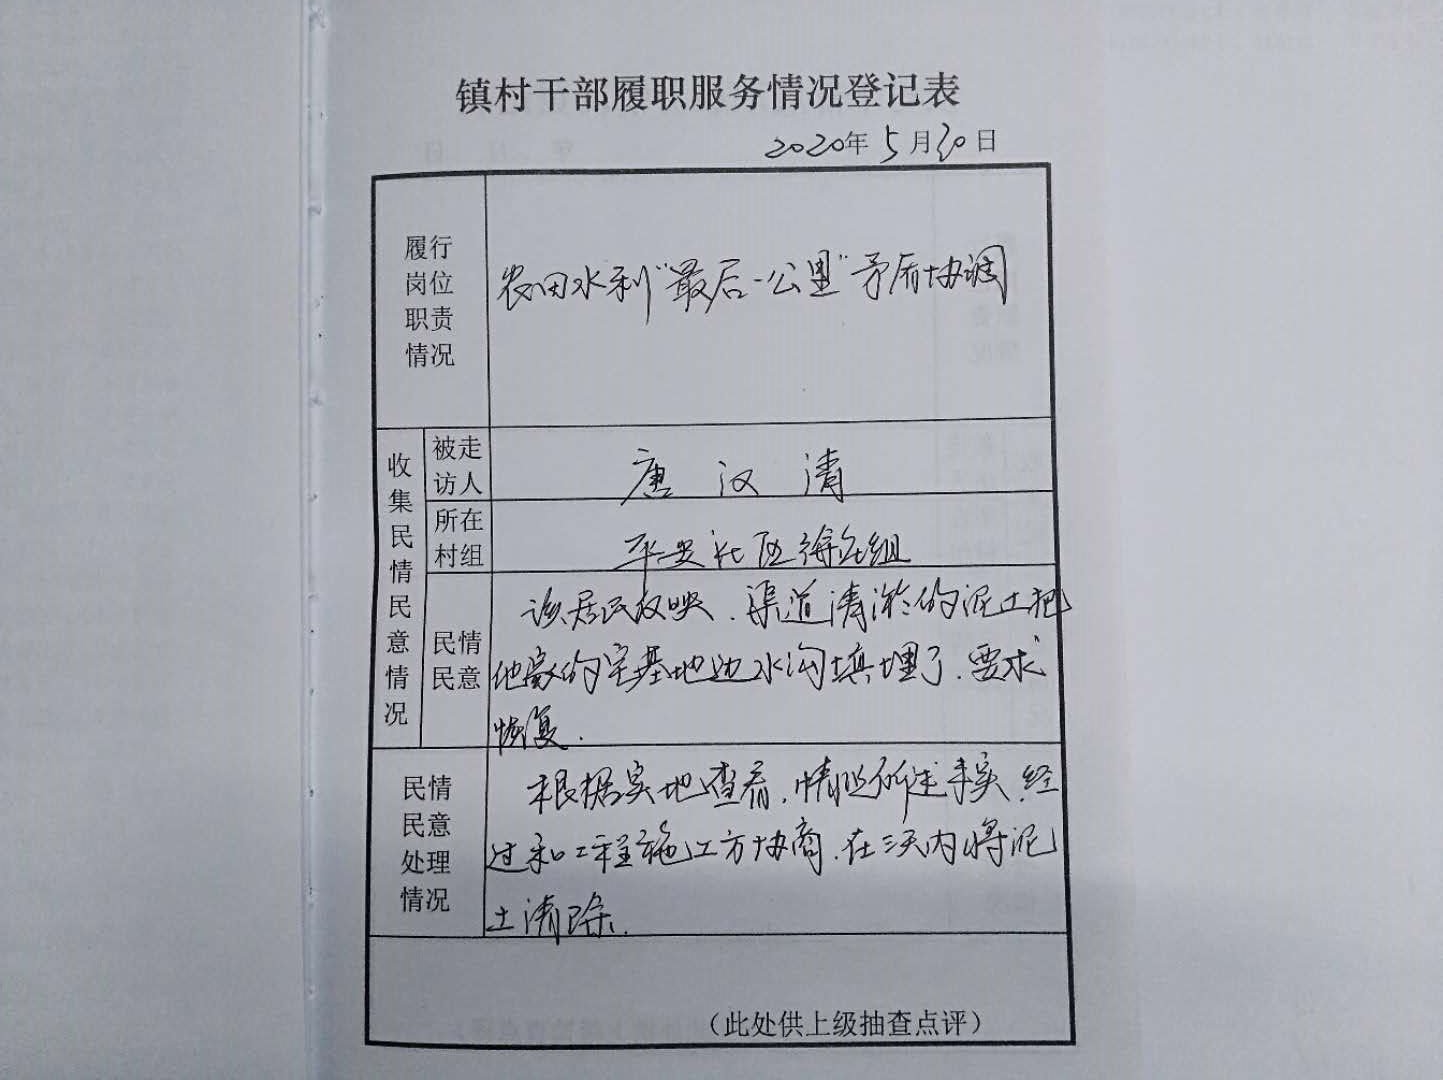 镇村干部履职服务情况登记表
2020年5月30日
履行
岗位
职责
情况
农田水利“最后一公里”矛盾协调
收集民情民意情况
被走
访人
唐汉清
所在
村组
平安社区
组
民情
民意
该居民反映、渠道清淤的泥土把
他家的宅基地边水沟填埋了、要求
恢复.
民情
民意
处理
情况
根据实地查看,情况所述事实,经
过和工程施工方协商.在三天内将泥
土清除.
（此处供上级抽查点评）